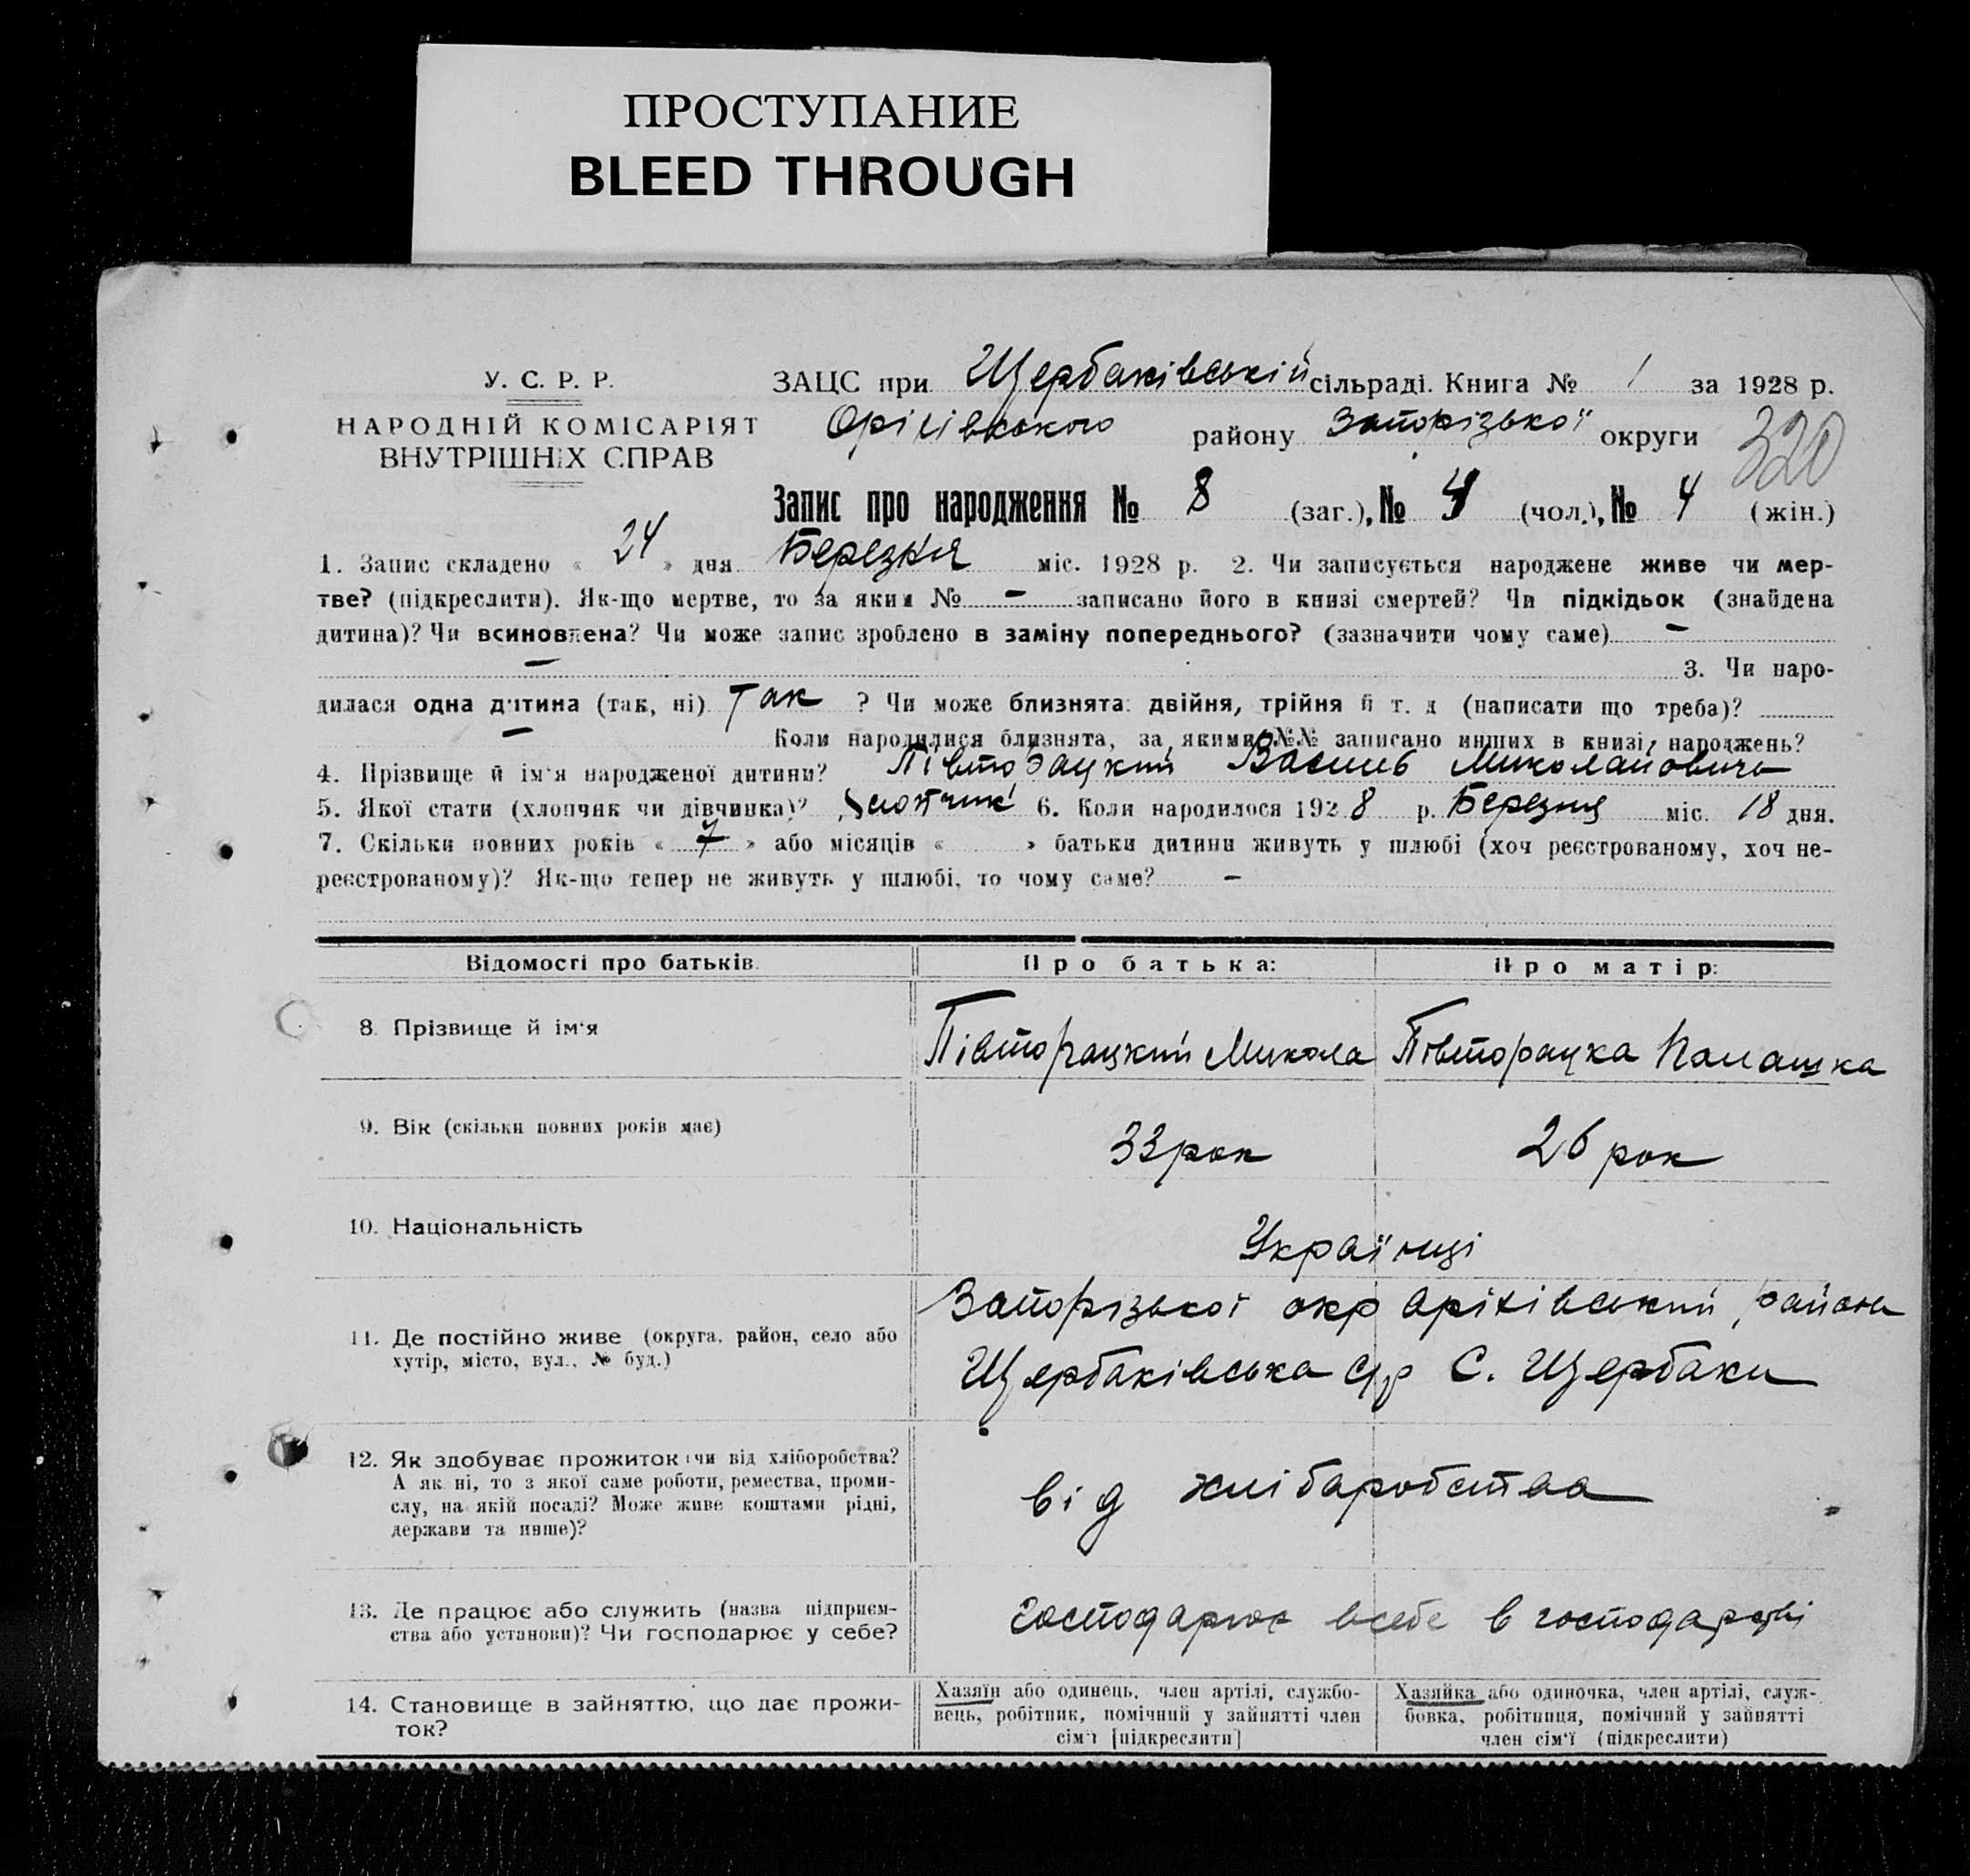 ПРОСТУПАНИЕ
BLEED THROUGH
У. С. Р. Р.
НАРОДНІЙ КОМІСАРІЯТ
ВНУТРІШНІХ СПРАВ
ЗАЦС при Щербаківській сільраді. Книга № 1 за 1928 р.
Оріхівського району Запорізької округи
320
Запис про народження № 8 (заг.), № 4 (чол.), № 4 (жін.)
1. Запис складено « 24 » дня Березня міс. 1928 р. 2. Чи записується народжене живе чи мер-
тве? (підкреслити). Як-що мертве, то за яким № – записано його в книзі смертей? Чи підкідьок (знайдена
дитина)? Чи всиновлена? Чи може запис зроблено в заміну попереднього? (зазначити чому саме) –
– 3. Чи наро-
дилася одна дитина (так, ні) Так ? Чи може близнята: двійня, трійня й т. д (написати що треба)?
– Коли народилися близнята, за якими №№ записано инших в книзі народжень?
4. Прізвище й ім'я народженої дитини? Півторацкий Василь Миколайович
5. Якої стати (хлопчик чи дівчинка)? Хлопчик 6. Коли народилося 1928 р. Березня міс. 18 дня.
7. Скільки повних років « 7 » або місяців « » батьки дитини живуть у шлюбі (хоч реєстрованому, хоч не-
реєстрованому)? Як-що тепер не живуть у шлюбі, то чому саме? –
Відомості про батьків. Про батька: Про матір:
8. Прізвище й ім'я Півторацкий Микола Півторацка Палашка
9. Вік (скільки повних років має) 33 рок 26 рок
10. Національність Українці
Запорізької окр Оріхівський района
11. Де постійно живе (округа, район, село або
хутір, місто, вул., № буд.) Щербаківська с/р С. Щербаки
12. Як здобуває прожиток: чи від хліборобства?
А як ні, то з якої саме роботи, ремества, проми-
слу, на якій посаді? Може живе коштами рідні,
держави та инше)?
від хлібаробства
13. Де працює або служить (назва підприєм-
ства або установи)? Чи господарює у себе?
господарює всебе в господарстві
14. Становище в зайняттю, що дає прожи-
ток?
Хазяїн або одинець, член артілі, службо-
вець, робітник, помічний у зайнятті член
сім'ї [підкреслити]
Хазяйка або одиночка, член артілі, служ-
бовка, робітниця, помічний у зайнятті
член сім'ї (підкреслити)